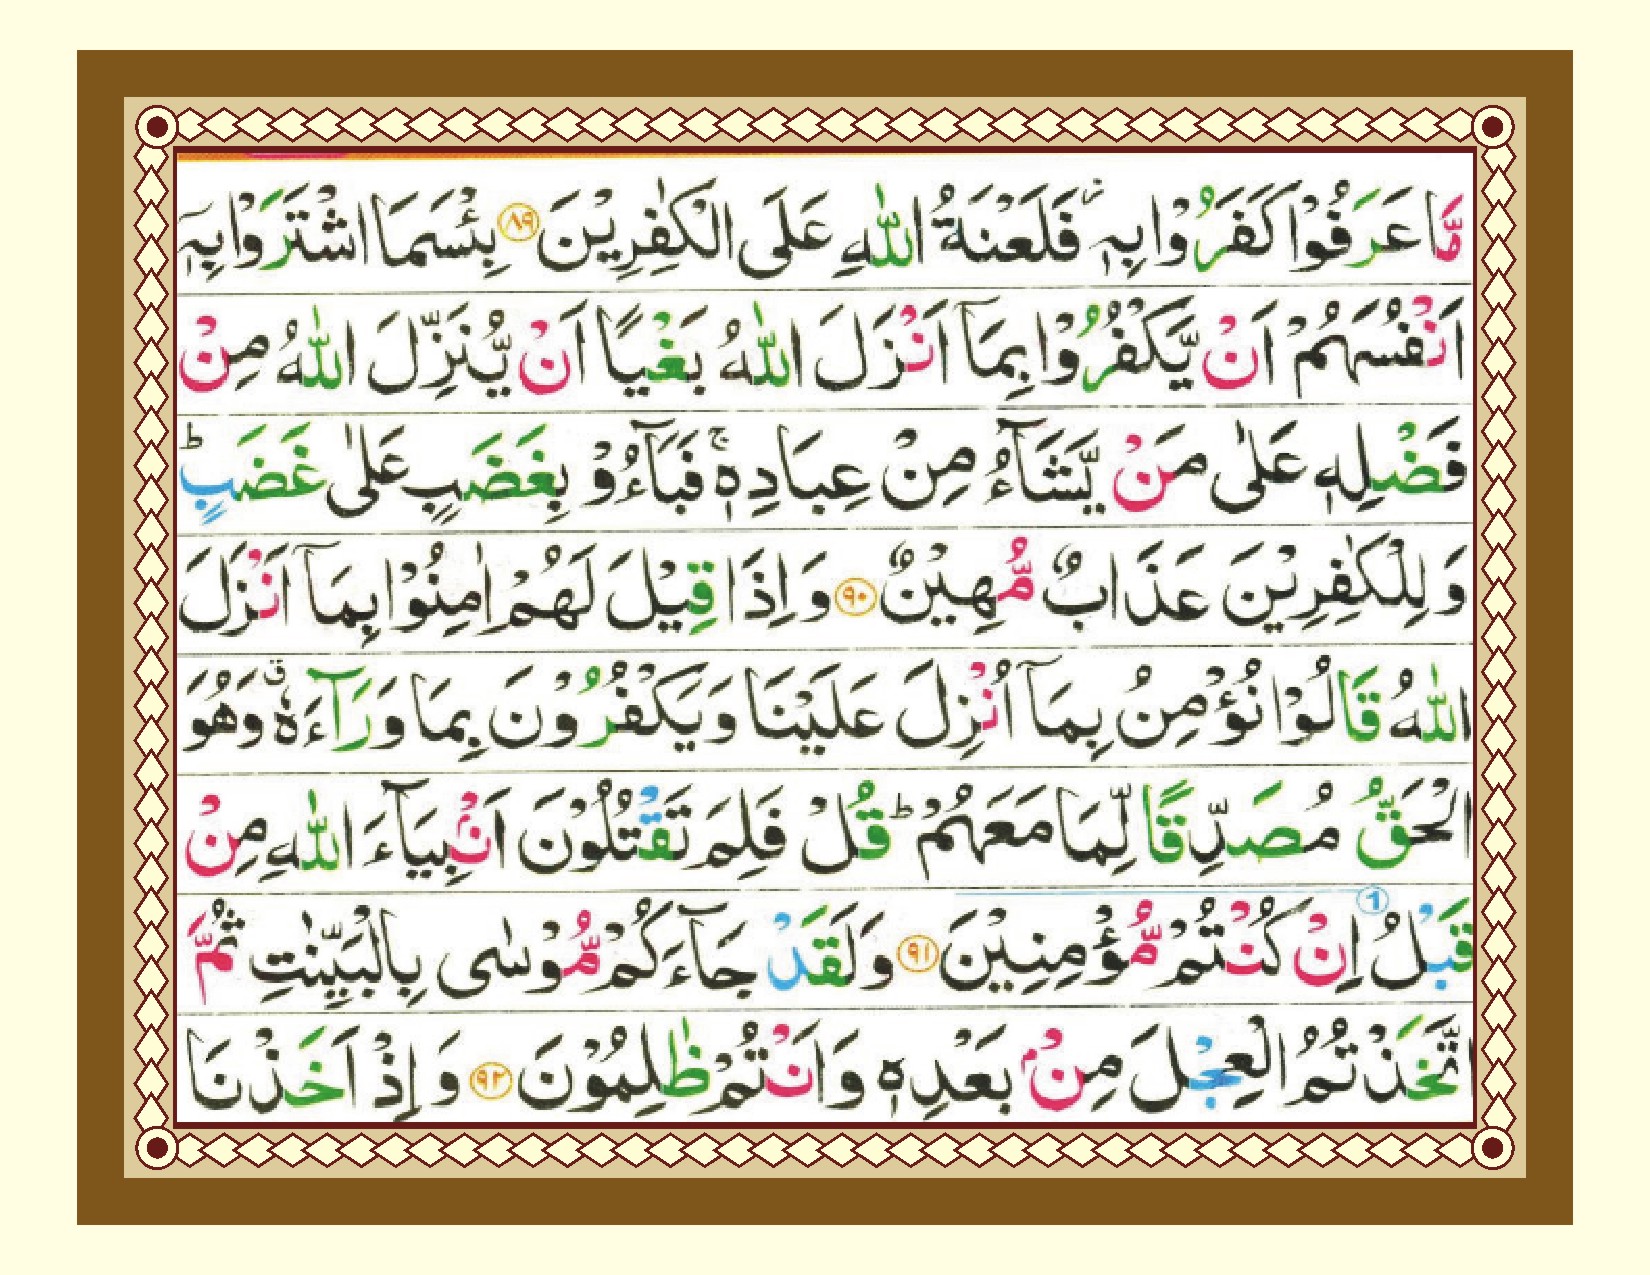 مَّا عَرَفُوْا كَفَرُوْا بِهٖ ۫ فَلَعْنَةُ اللّٰهِ عَلَى الْكٰفِرِيْنَ ۝۸۹ بِئْسَمَا اشْتَرَوْا بِهٖۤ
اَنْفُسَهُمْ اَنْ يَّكْفُرُوْا بِمَاۤ اَنْزَلَ اللّٰهُ بَغْيًا اَنْ يُّنَزِّلَ اللّٰهُ مِنْ
فَضْلِهٖ عَلٰى مَنْ يَّشَآءُ مِنْ عِبَادِهٖ ۚ فَبَآءُوْ بِغَضَبٍ عَلٰى غَضَبٍ ؕ
وَ لِلْكٰفِرِيْنَ عَذَابٌ مُّهِيْنٌ ۝۹۰ وَ اِذَا قِيْلَ لَهُمْ اٰمِنُوْا بِمَاۤ اَنْزَلَ
اللّٰهُ قَالُوْا نُؤْمِنُ بِمَاۤ اُنْزِلَ عَلَيْنَا وَ يَكْفُرُوْنَ بِمَا وَرَآءَهٗ ۗ وَ هُوَ
الْحَقُّ مُصَدِّقًا لِّمَا مَعَهُمْ ؕ قُلْ فَلِمَ تَقْتُلُوْنَ اَنْۢبِيَآءَ اللّٰهِ مِنْ
قَبْلُ اِنْ كُنْتُمْ مُّؤْمِنِيْنَ ۝۹۱ وَ لَقَدْ جَآءَكُمْ مُّوْسٰى بِالْبَيِّنٰتِ ثُمَّ
اتَّخَذْتُمُ الْعِجْلَ مِنْۢ بَعْدِهٖ وَ اَنْتُمْ ظٰلِمُوْنَ ۝۹۲ وَ اِذْ اَخَذْنَا